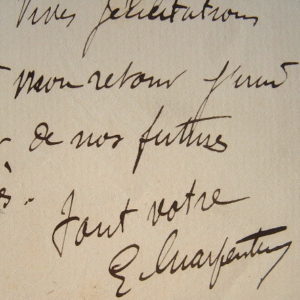 Vives félicitations
mon retour j'irai
de nos futures
ès.
Tout votre
G. Charpentier